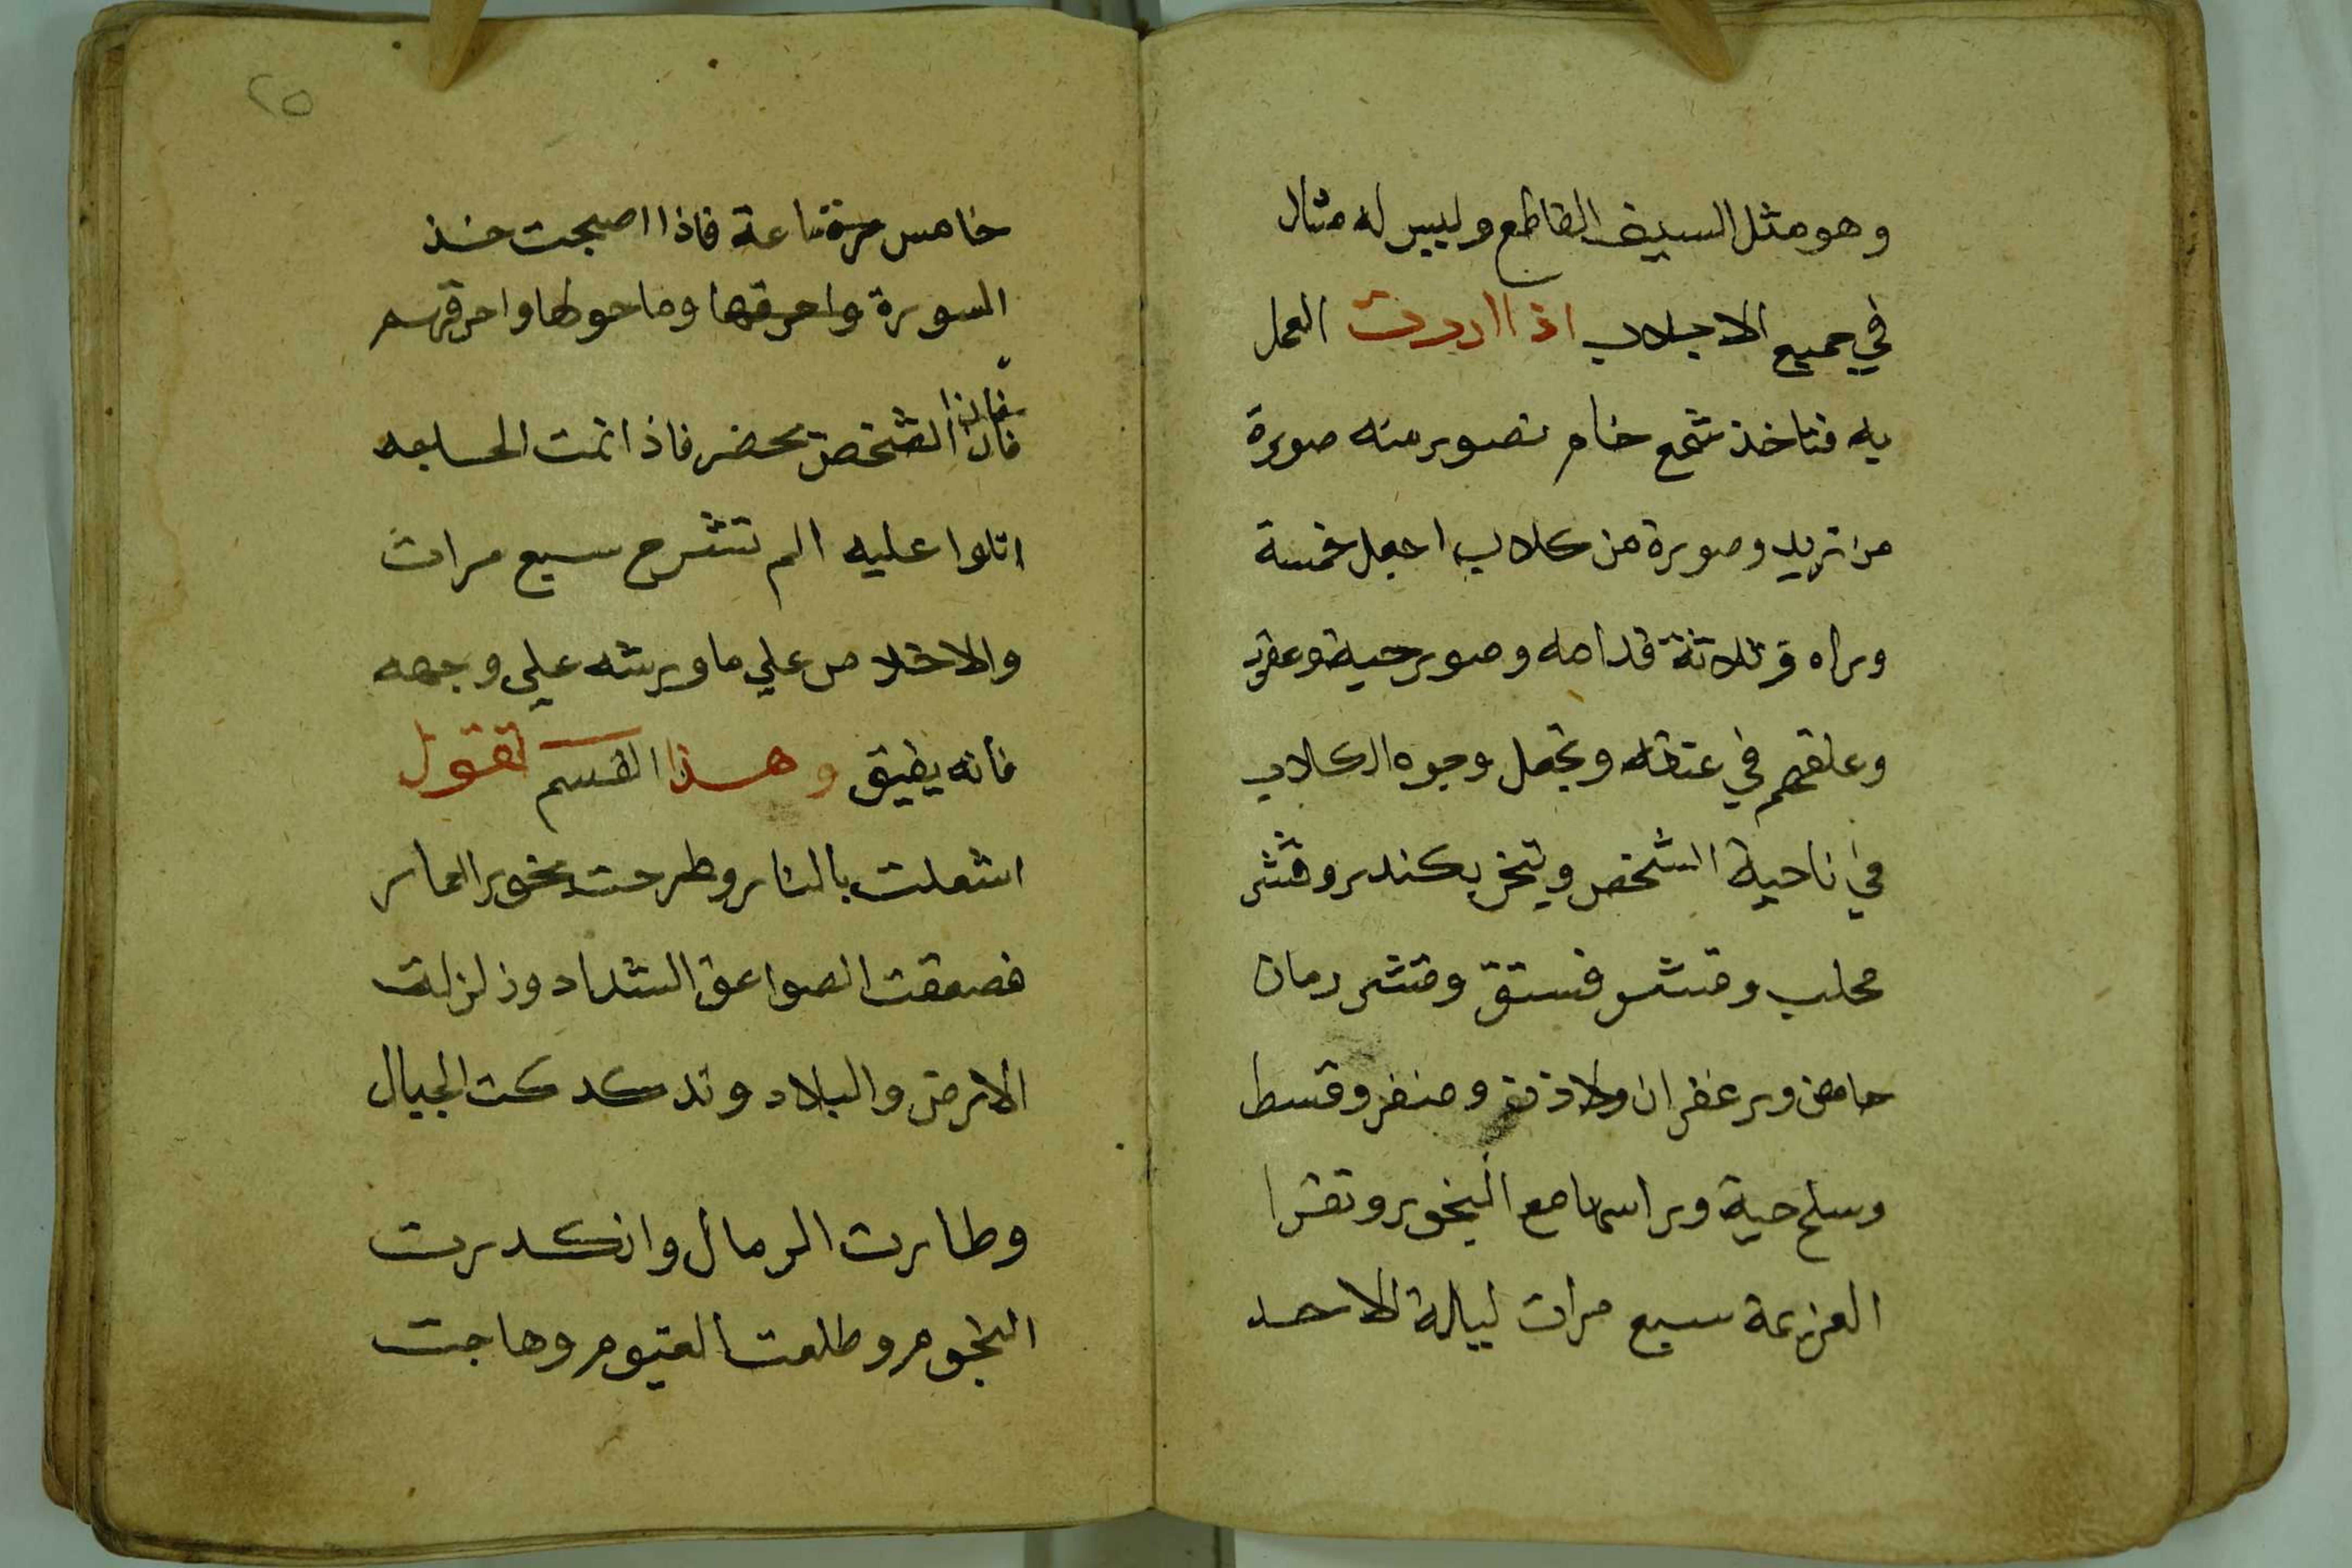 وهو مثل السيف القاطع وليس له مثال
في جميع الاجلاب اذا اردت العمل
به فتاخذ شمع خام تصور منه صورة
من تريد وصورة من كلاب اجعل خمسة
وراه و ثلاثة قدامه وصور حية وعقرب
وعلقهم في عنقه وتجعل وجوه الكلاب
في ناحية الشخص وتبخر بكندر وقشر
محلب وقشر فستق وقشر رمان
حامض وزعفران ولاذن و وقسط
وسلخ حية وراسها مع البخور وتقرا
العزيمة سبع مرات ليلة الاحد
٢٥
خامس ساعة فاذا اصبحت خذ
السورة واحرقها وما حولها واحرقهم
فان الشخص يحضر فاذا اتمت
اتلوا عليه الم نشرح سبع مرات
والاخلاص علي ما ورشه علي وجهه
فانه يفيق وهذا القسم تقول
اشعلت بالنار وطرحت بخور العمار
فصعقت الصواعق الشداد وزلزلت
الارض والبلاد وتدكدكت الجبال
وطارت الرمال وانكدرت
النجوم وطلعت الغيوم وهاجت